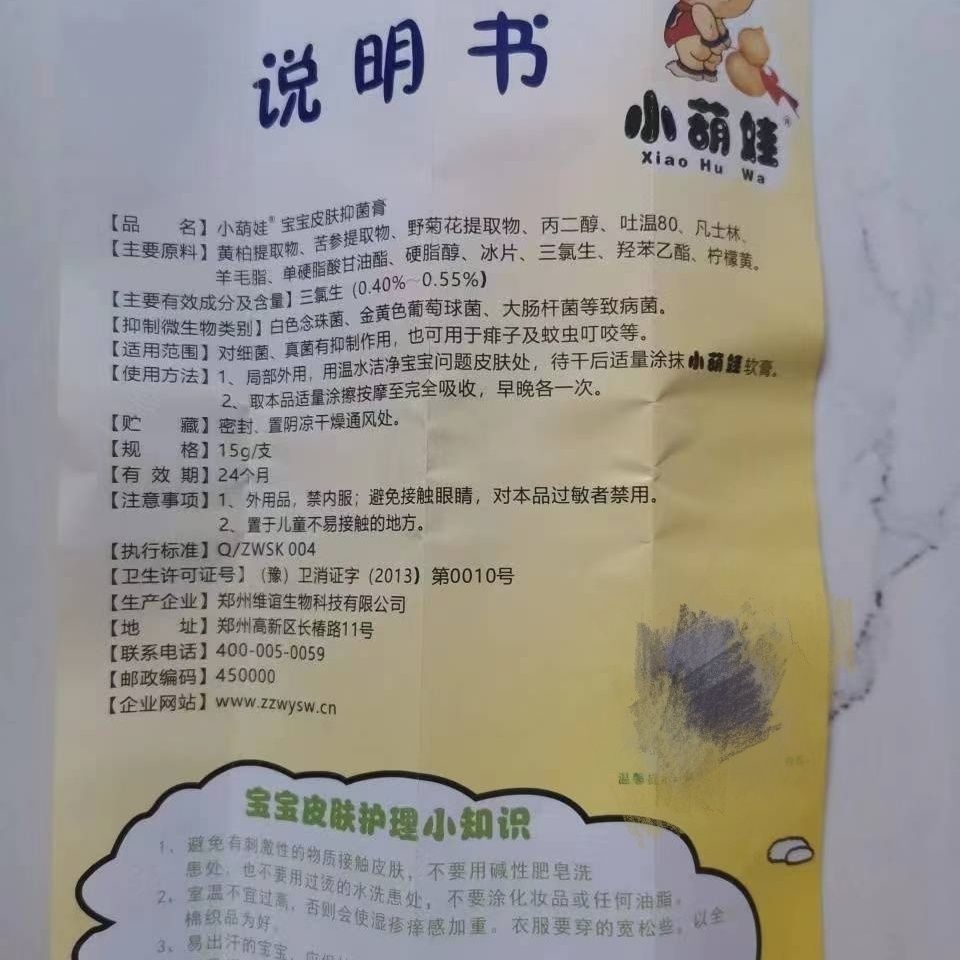 说明书
小葫娃®
Xiao Hu Wa
【品 名】小葫娃® 宝宝皮肤抑菌膏
【主要原料】黄柏提取物、苦参提取物、野菊花提取物、丙二醇、吐温80、凡士林、
羊毛脂、单硬脂酸甘油酯、硬脂醇、冰片、三氯生、羟苯乙酯、柠檬黄。
【主要有效成分及含量】三氯生（0.40%~0.55%）
【抑制微生物类别】白色念珠菌、金黄色葡萄球菌、大肠杆菌等致病菌。
【适用范围】对细菌、真菌有抑制作用，也可用于痱子及蚊虫叮咬等。
【使用方法】1、局部外用，用温水洁净宝宝问题皮肤处，待干后适量涂抹小葫娃软膏。
2、取本品适量涂擦按摩至完全吸收，早晚各一次。
【贮 藏】密封、置阴凉干燥通风处。
【规 格】15g/支
【有 效 期】24个月
【注意事项】1、外用品，禁内服；避免接触眼睛，对本品过敏者禁用。
2、置于儿童不易接触的地方。
【执行标准】Q/ZWSK 004
【卫生许可证号】（豫）卫消证字（2013）第0010号
【生产企业】郑州维谊生物科技有限公司
【地 址】郑州高新区长椿路11号
【联系电话】400-005-0059
【邮政编码】450000
【企业网站】www.zzwysw.cn
温馨
宝宝皮肤护理小知识
1、避免有刺激性的物质接触皮肤，不要用碱性肥皂洗
患处，也不要用过烫的水洗患处，不要涂化妆品或任何油脂。
2、室温不宜过高，否则会使湿疹痒感加重。衣服要穿的宽松些，以全
棉织品为好。
3、易出汗的宝宝，应